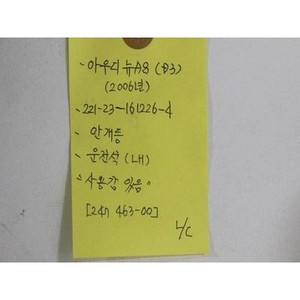 - 아우디 뉴A8 (D3)
(2006년)
- 221-23-161226-4
- 안개등
- 운전석 (LH)
"사용감 있음"
[24A 463-00]
L/C